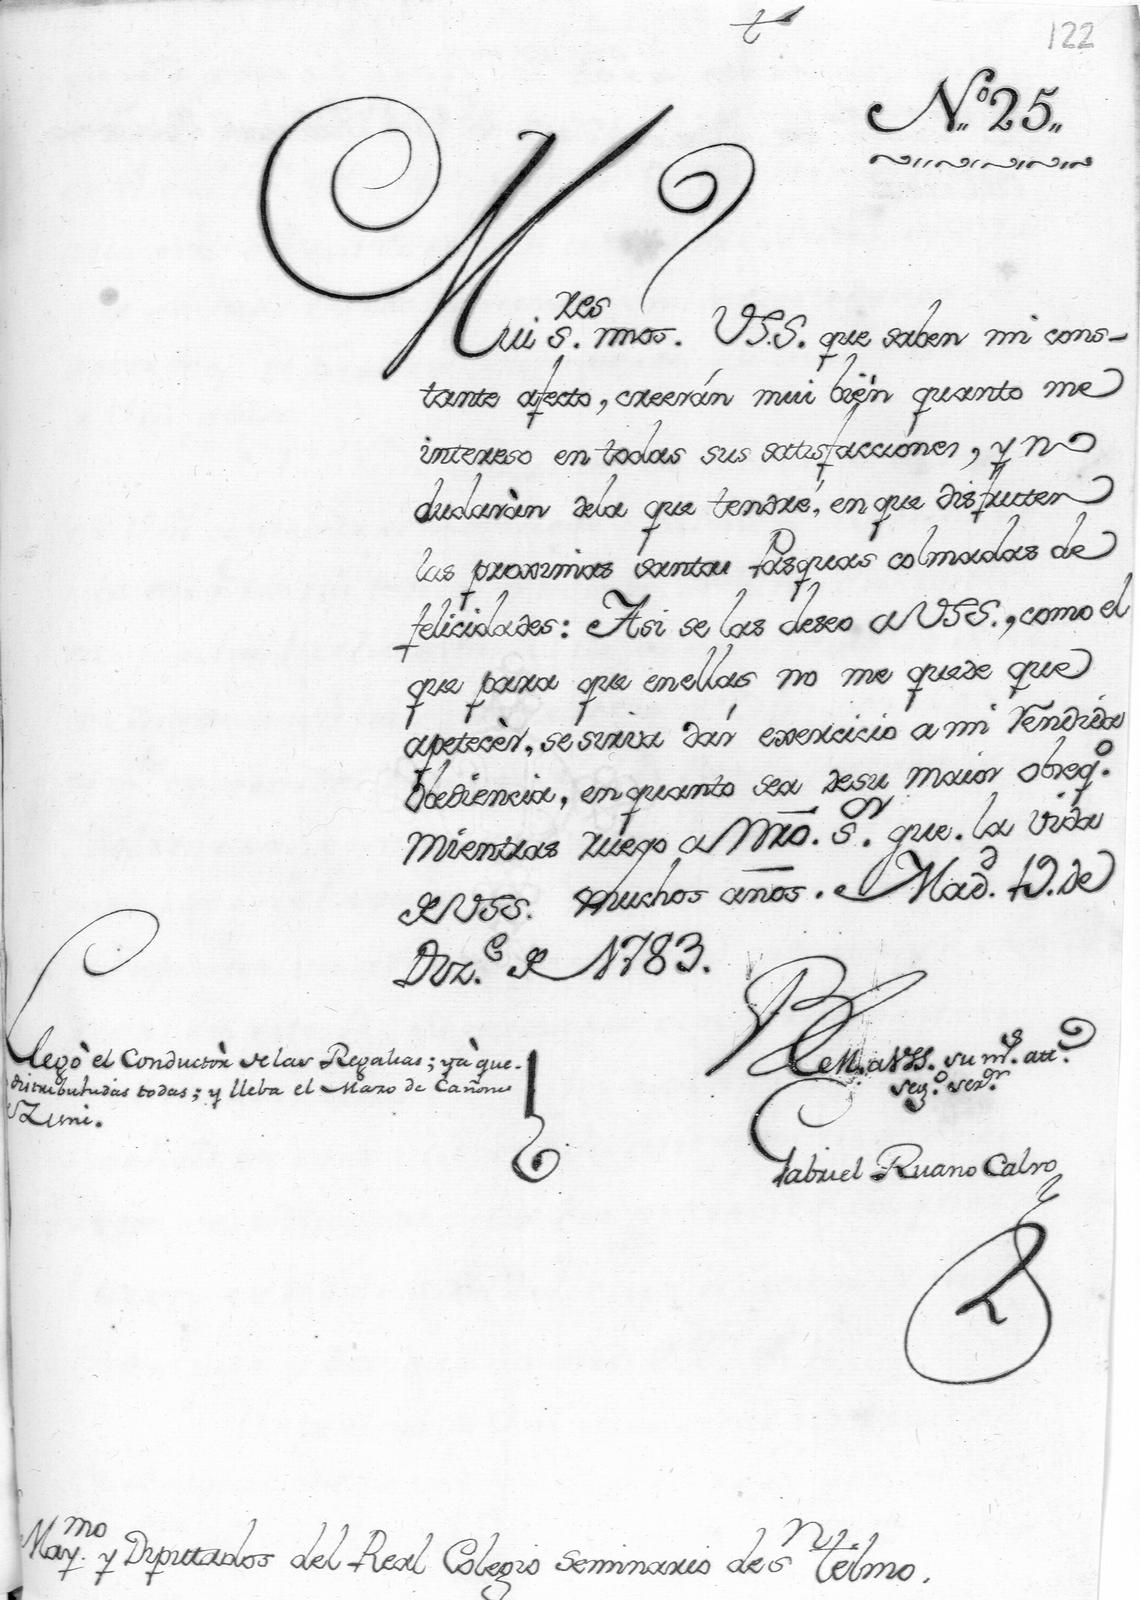 122
N.º 25.
Mui s.res mios. VSS. que saben mi cons-
tante afecto, creerán mui bién quanto me
intereso en todas sus satisfacciones, y no
dudaràn dela que tendré, en que disfruten
las proximas santas Pasquas colmadas de
felicidades: Asi se las deseo a VSS., como el
que para que enellas no me quede que
apetecèr, se sirva dár exercicio a mi rendida
obediencia, en quanto sea desu maior obseq.º
Mientras ruego a Nro. s.or gue. la vida
de VSS. muchos años. Mad.d 19. de
Diz.e de 1783.
BLM. a VSS. su m.s att.o
seg.o serv.r
Gabriel Ruano Calvo
Llegò el Conductòr de las Regalias; yà que.
distribuhidas todas; y lleba el Mazo de Cañones
May.mo y Diputados del Real Colegio seminario de s.n telmo.